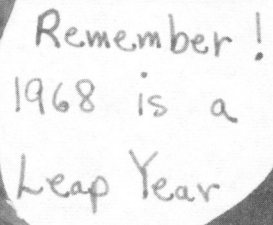 Remember!
1968 is a
Leap Year